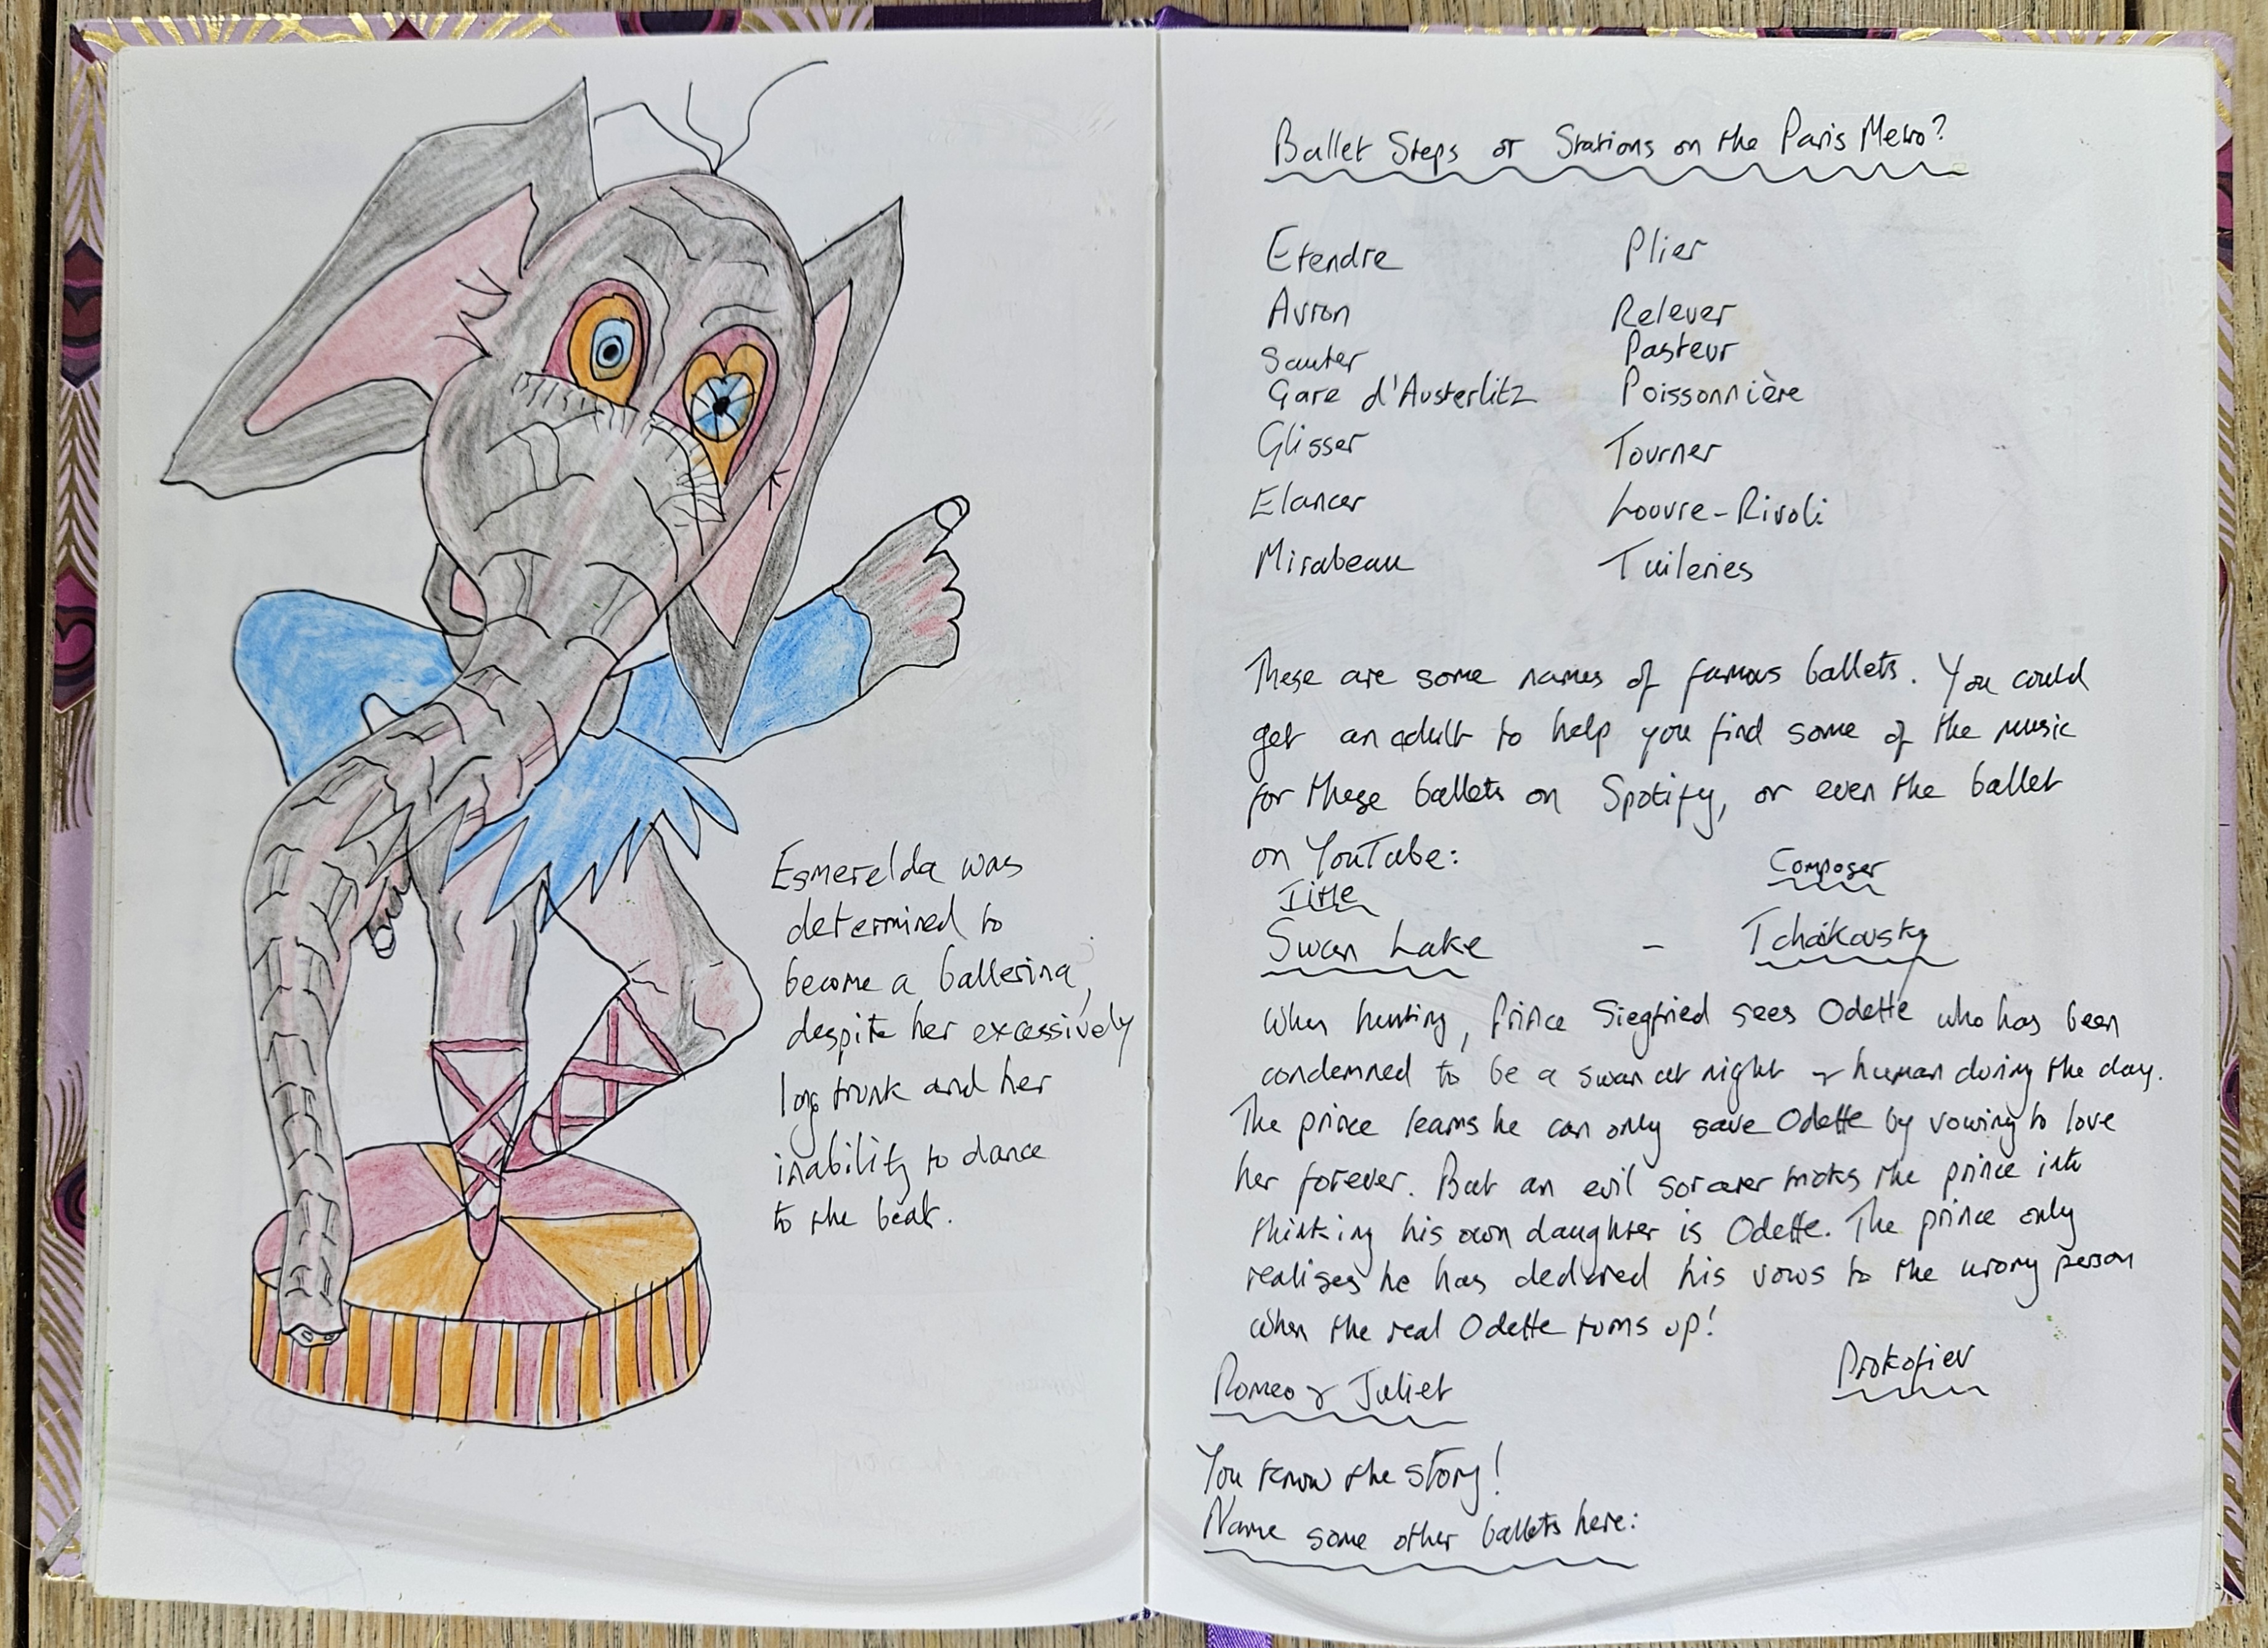 Esmerelda was
determined to
become a ballerina,
despite her excessively
long trunk and her
inability to dance
to the beat.
Ballet Steps or Stations on the Paris Metro?
Etendre Plier
Avron Relever
Sauter Pasteur
Gare d'Austerlitz Poissonnière
Glisser Tourner
Elancer Louvre-Rivoli
Mirabeau Tuileries
These are some names of famous ballets. You could
get an adult to help you find some of the music
for these ballets on Spotify, or even the ballet
on YouTube:
Title Composer
Swan Lake - Tchaikovsky
When hunting, Prince Siegfried sees Odette who has been
condemned to be a swan at night & human during the day.
The prince learns he can only save Odette by vowing to love
her forever. But an evil sorcerer tricks the prince into
thinking his own daughter is Odette. The prince only
realises he has declared his vows to the wrong person
when the real Odette turns up!
Romeo & Juliet Prokofiev
You know the story!
Name some other ballets here: